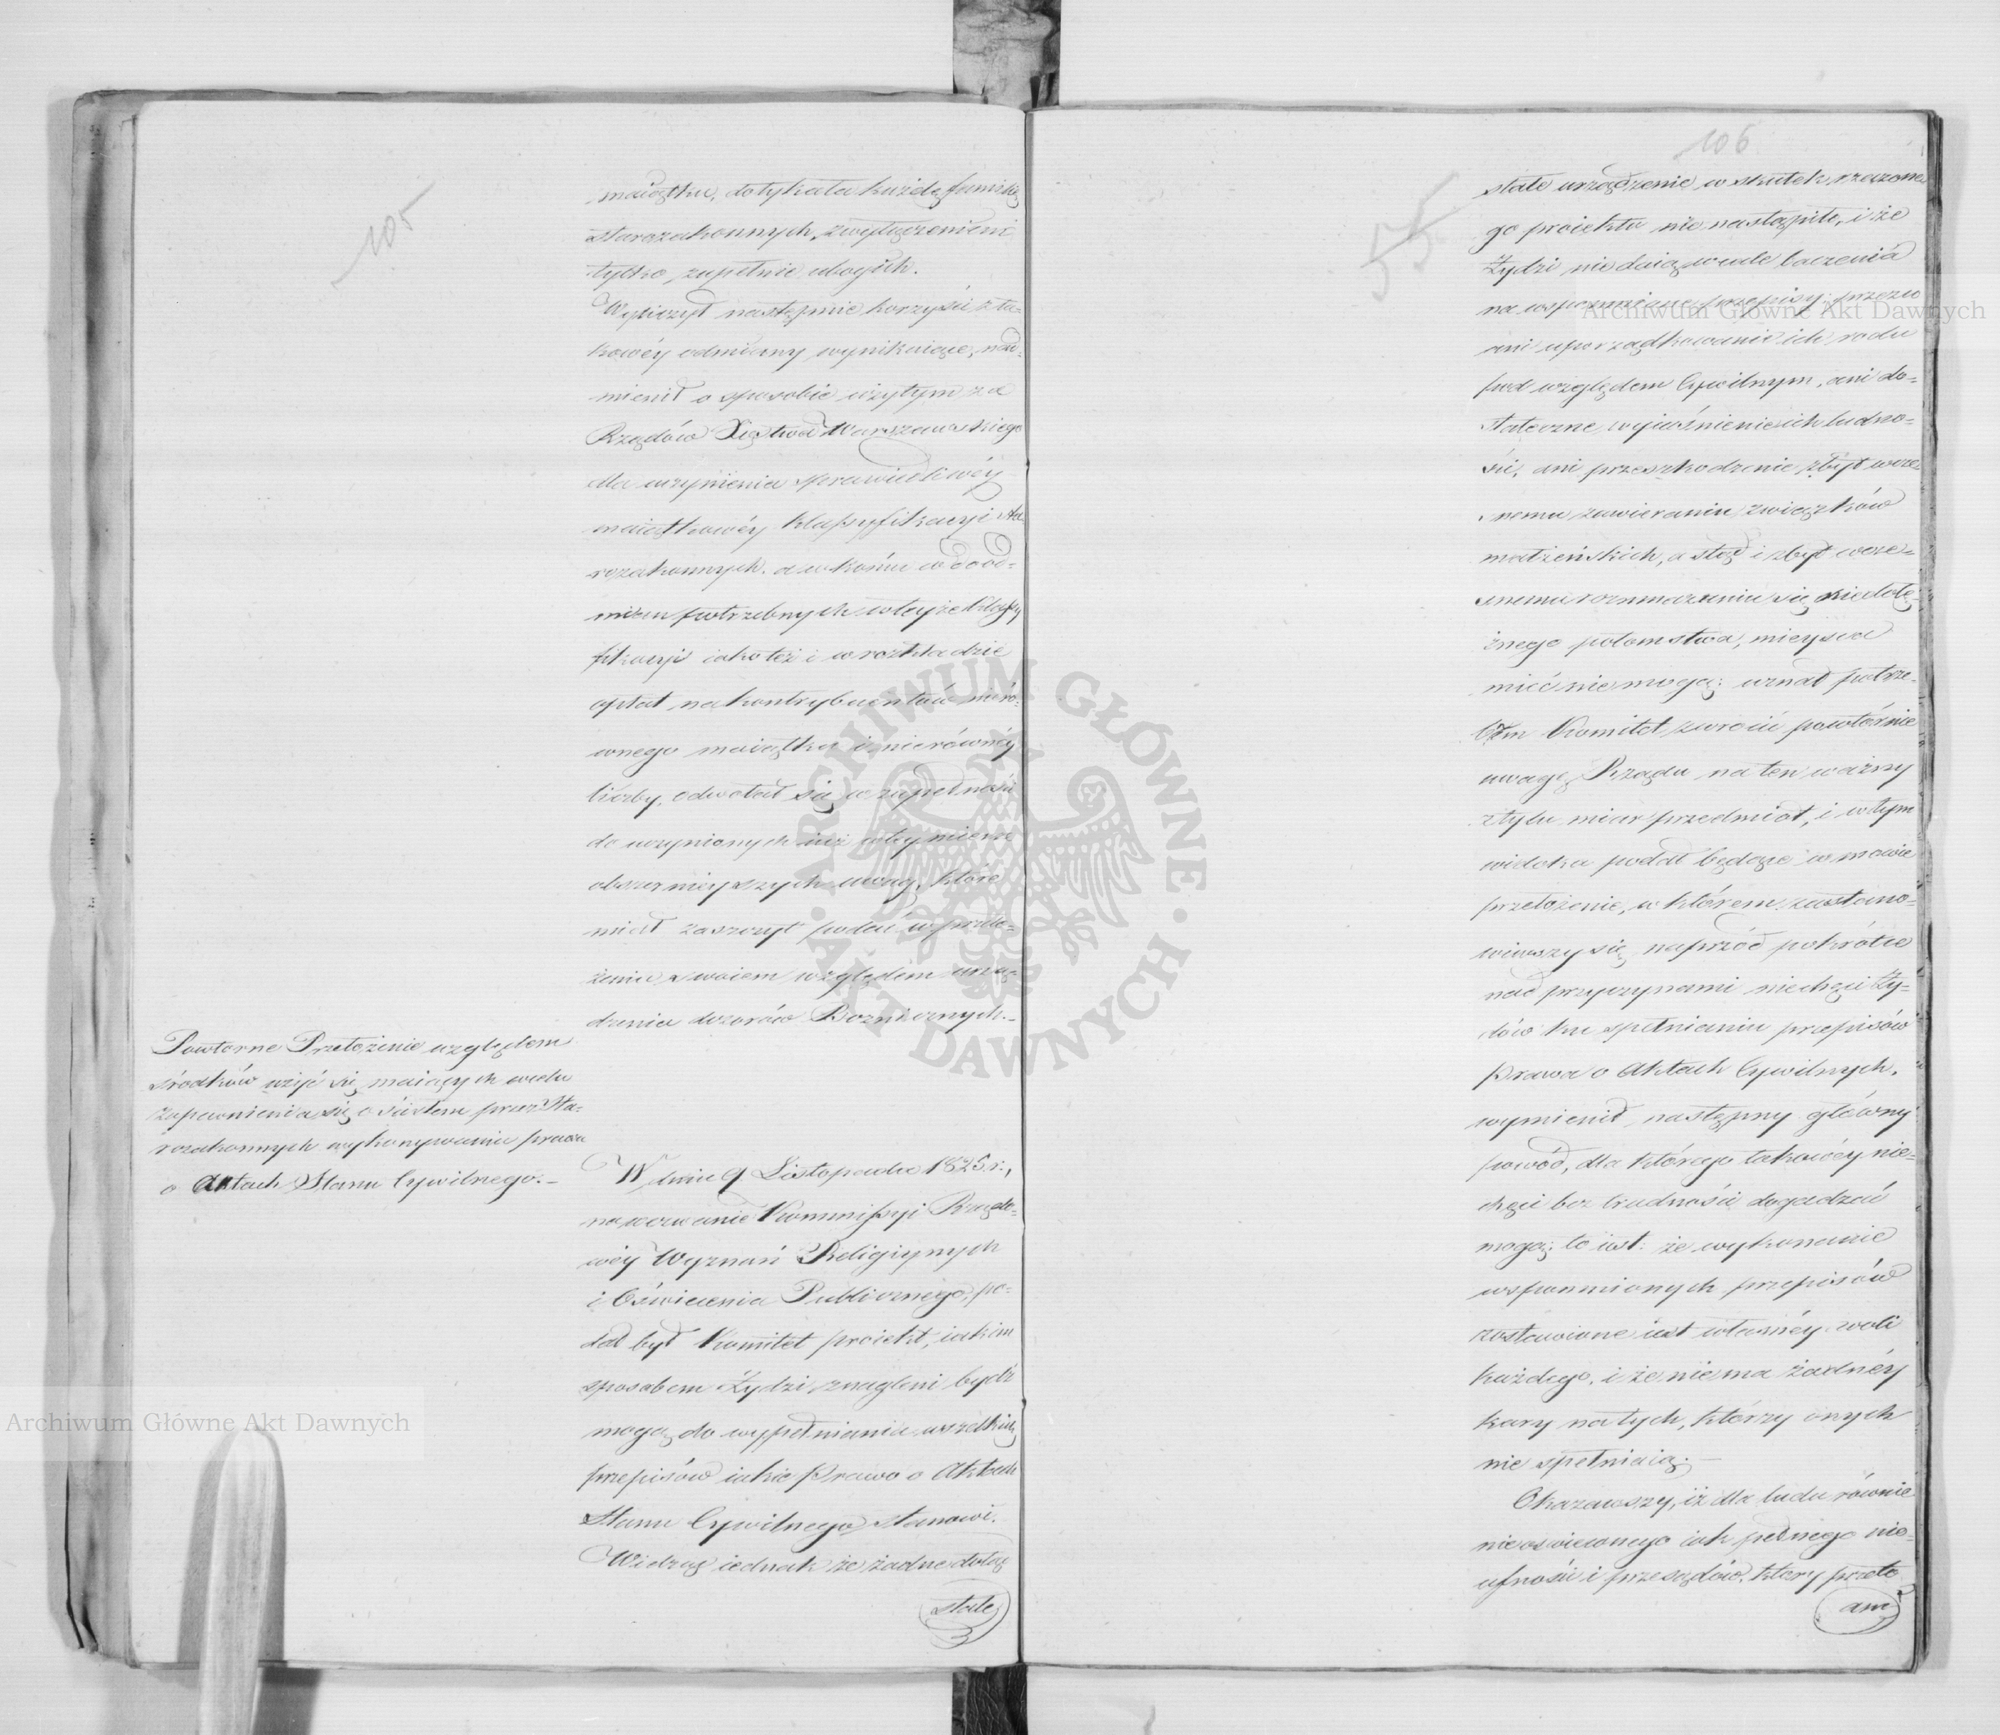 105
maiątku, dotykała każdą familię
starozakonnych, z wyłączeniem
tylko zupełnie ubogich.
Wyliczył następnie korzyści z ta-
kowéy odmiany wynikaiące, nad-
mienił o sposobie użytym za
Rządów Xięstwa Warszawskiego
dla uczynienia sprawiedliwéy
maiątkowéy klassyfikacyi sta-
rozakonnych. a w końcu co do od-
mian potrzebnych w teyże klassy-
fikacyi iako też i w rozkładzie
opłat na kontrybuentów nieró-
wnego maiątku i nierównéy
liczby, odwołał się w zupełności
do uczynionych iuż w tey mierze
obszernieyszych uwag, które
miał zaszczyt podać w przeło-
żeniu swoiem względem urzą-
dzenia dozorów Bożniczych.-
Powtorne Przełożenie względem
środków użyć się maiących celu
zapewnienia się o ścisłem przez Sta-
rozakonnych wykonywaniu prawa
o Aktach Stanu Cywilnego.-
W dniu 9 Listopada 1825 r.,
na wezwanie Kommissyi Rządo-
wéy Wyznań Religiynych
i Oświecenia Publicznego, po-
dał był Komitet proiekt, iakim
sposobem Żydzi znagleni bydź
mogą do wypełniania wszelkich
przepisów iakie Prawo o Aktach
Stanu Cywilnego stanowi.
Widząc iednak że żadne dotąd
stałe
106
55
stałe urządzenie w skutek rzeczone-
go proiektu nie nastąpiło, i że
Żydzi nie daią wcale baczenia
na wspomniane przepisy; przezco
ani uporządkowanie ich rodu
pod względem Cywilnym, ani do-
stateczne wyiaśnienie ich ludno-
ści, ani przeszkodzenie zbyt wcze-
snemu zawieraniu związków
małżeńskich, a stąd i zbyt wcze-
snemu rozmnażaniu się niedołę-
żnego potomstwa, mieysca
mieć nie mogą; uznał potrze-
bem Komitet zwrócić powtórnie
uwagę Rządu na ten ważny
z tylu miar przedmiot, i w tym
widoku podał będące w mowie
przełożenie, w którem zastano-
wiwszy się naprzód pokrótce
nad przyczynami niechęci Ży-
dów ku spełnianiu przepisów
Prawa o Aktach Cywilnych,
wymienił następny główny
powód, dla którego takowéy nie-
chęci bez trudności dogadzać
mogą; to iest: że wykonanie
wspomnionych przepisów
zostawione iest własnéy woli
każdego, i że niema żadnéy
kary na tych, którzy onych
nie spełniaią;-
Okazawszy, iż dla ludu równie
nieoświeconego iak pełnego nie-
ufności i przesądów, który przeto
ani
Archiwum Główne Akt Dawnych
Archiwum Główne Akt Dawnych
ARCHIWUM GŁÓWNE AKT DAWNYCH